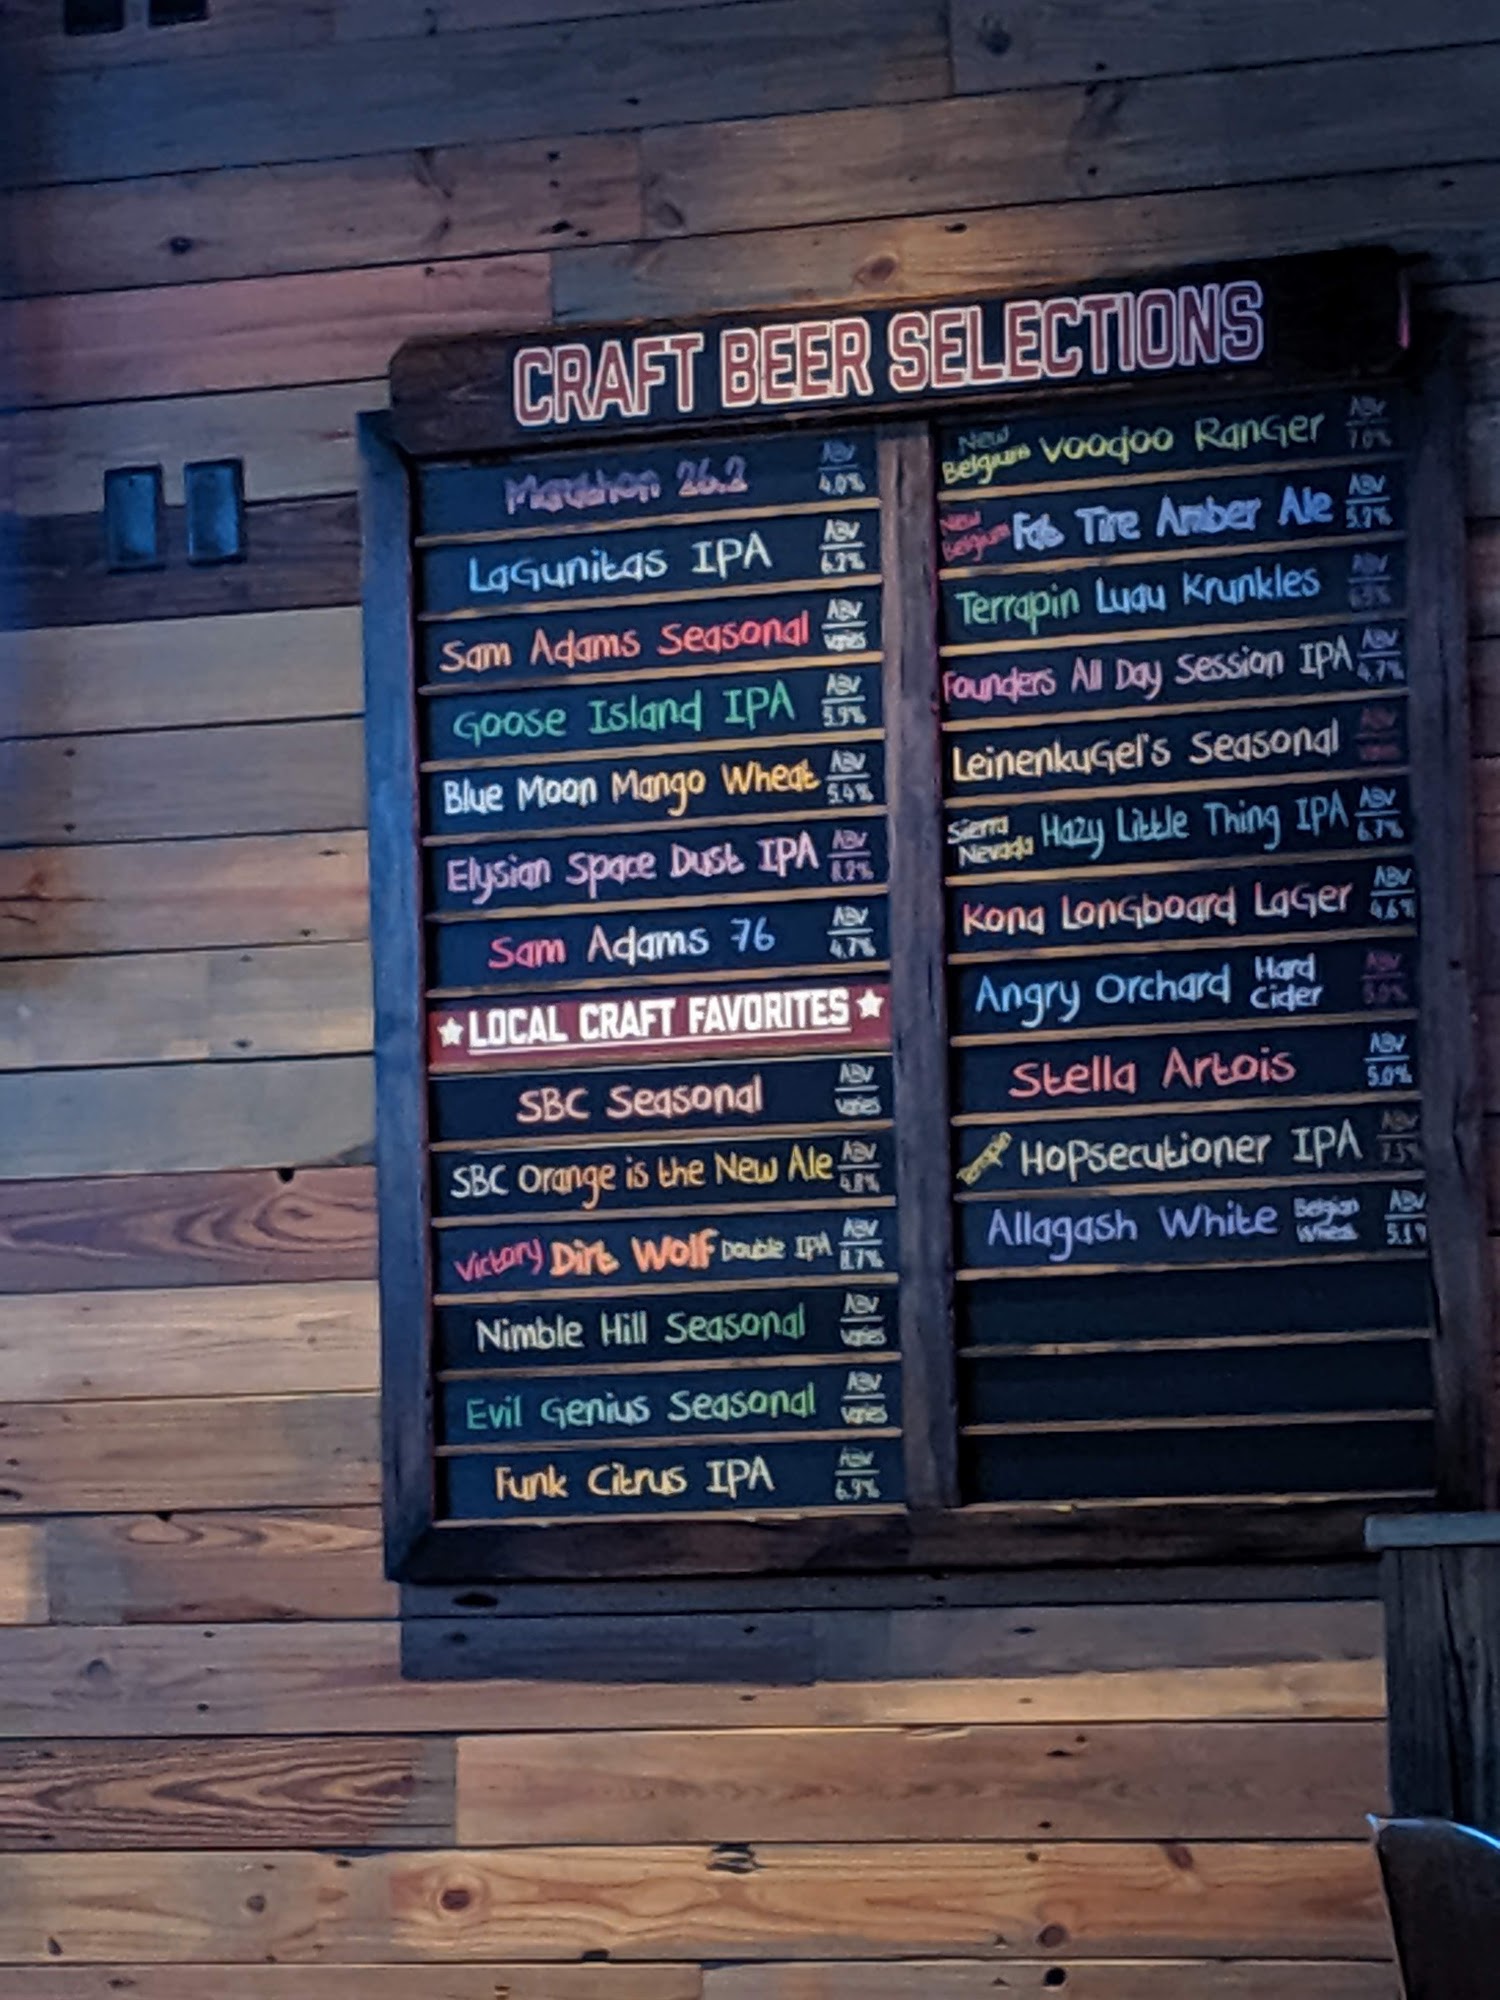 CRAFT BEER SELECTIONS
Marathon 26.2 ABV 4.0%
Lagunitas IPA ABV 6.2%
Sam Adams Seasonal ABV varies
Goose Island IPA ABV 5.9%
Blue Moon Mango Wheat ABV 5.4%
Elysian Space Dust IPA ABV 8.2%
Sam Adams 76 ABV 4.7%
LOCAL CRAFT FAVORITES
SBC Seasonal ABV varies
SBC Orange is the New Ale ABV 4.8%
Victory Dirt Wolf Double IPA ABV 8.7%
Nimble Hill Seasonal ABV varies
Evil Genius Seasonal ABV varies
Funk Citrus IPA ABV 6.9%
New Belgium Voodoo Ranger ABV 7.0%
New Belgium Fat Tire Amber Ale ABV 5.2%
Terrapin Luau Krunkles ABV
Founders All Day Session IPA ABV 4.7%
Leinenkugel's Seasonal ABV varies
Sierra Nevada Hazy Little Thing IPA ABV 6.7%
Kona Longboard Lager ABV 4.6%
Angry Orchard Hard Cider ABV 5.0%
Stella Artois ABV 5.0%
Terrapin Hopsecutioner IPA ABV 7.3%
Allagash White Belgian Wheat ABV 5.1%